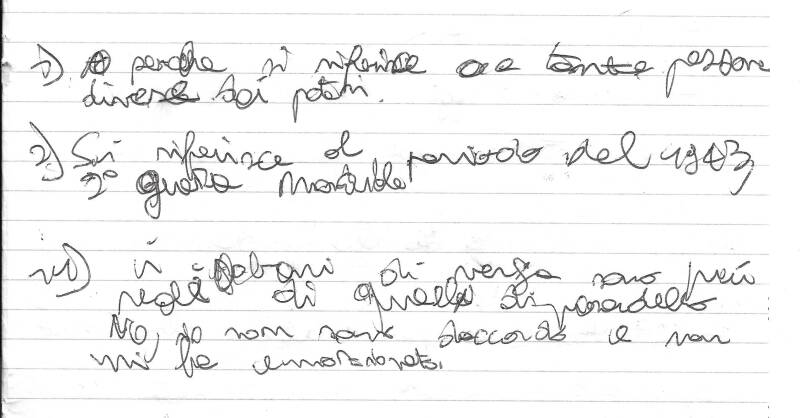 1) perche si riferisce a tante persone
diverse dei poteri.
2) Si riferisce al periodo del 1943,
2° guera mondiale
di verga sono più
reali di quelli di
No, io non sono daccordo e non
mi ha emozionato.